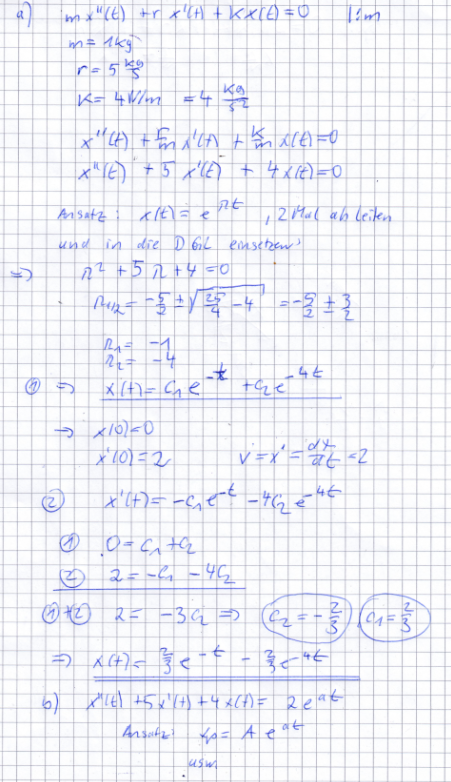 a) m x''(t) + r x'(t) + K x(t) = 0 | : m
m = 1 kg
r = 5 kg/s
K = 4 N/m = 4 kg/s²
x''(t) + r/m x'(t) + k/m x(t) = 0
x''(t) + 5 x'(t) + 4 x(t) = 0
Ansatz: x(t) = e^λt, 2 Mal ableiten
und in die DGL einsetzen
=> λ² + 5 λ + 4 = 0
λ1/2 = -5/2 ± √(25/4 - 4) = -5/2 ± 3/2
λ1 = -1
λ2 = -4
① => x(t) = C1 e^-t + C2 e^-4t
→ x(0) = 0
x'(0) = 2 v = x' = dx/dt = 2
② x'(t) = -C1 e^-t - 4C2 e^-4t
① 0 = C1 + C2
② 2 = -C1 - 4C2
①+② 2 = -3C2 => C2 = -2/3, C1 = 2/3
=> x(t) = 2/3 e^-t - 2/3 e^-4t
b) x''(t) + 5x'(t) + 4x(t) = 2 e^at
Ansatz: xp = A e^at
usw.